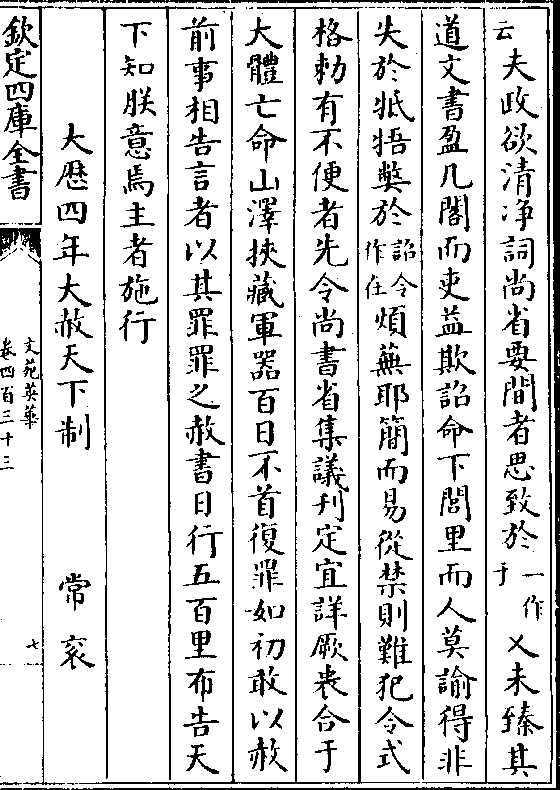 云夫政欲清净詞尚省要間者思致於一作于乂未臻其
道文書盈几閣而吏益欺詔命下閭里而人莫諭得非
失於牴牾獘於詔令作在煩蕪耶簡而易從禁則難犯令式
格勅有不便者先令尚書省集議刋定宜詳厥衷合于
大體亡命山澤挾藏軍器百日不首復罪如初敢以赦
前事相告言者以其罪罪之赦書日行五百里布告天
下知朕意焉主者施行
大厯四年大赦天下制 常衮
欽定四庫全書
文苑英華
卷四百三十三
七